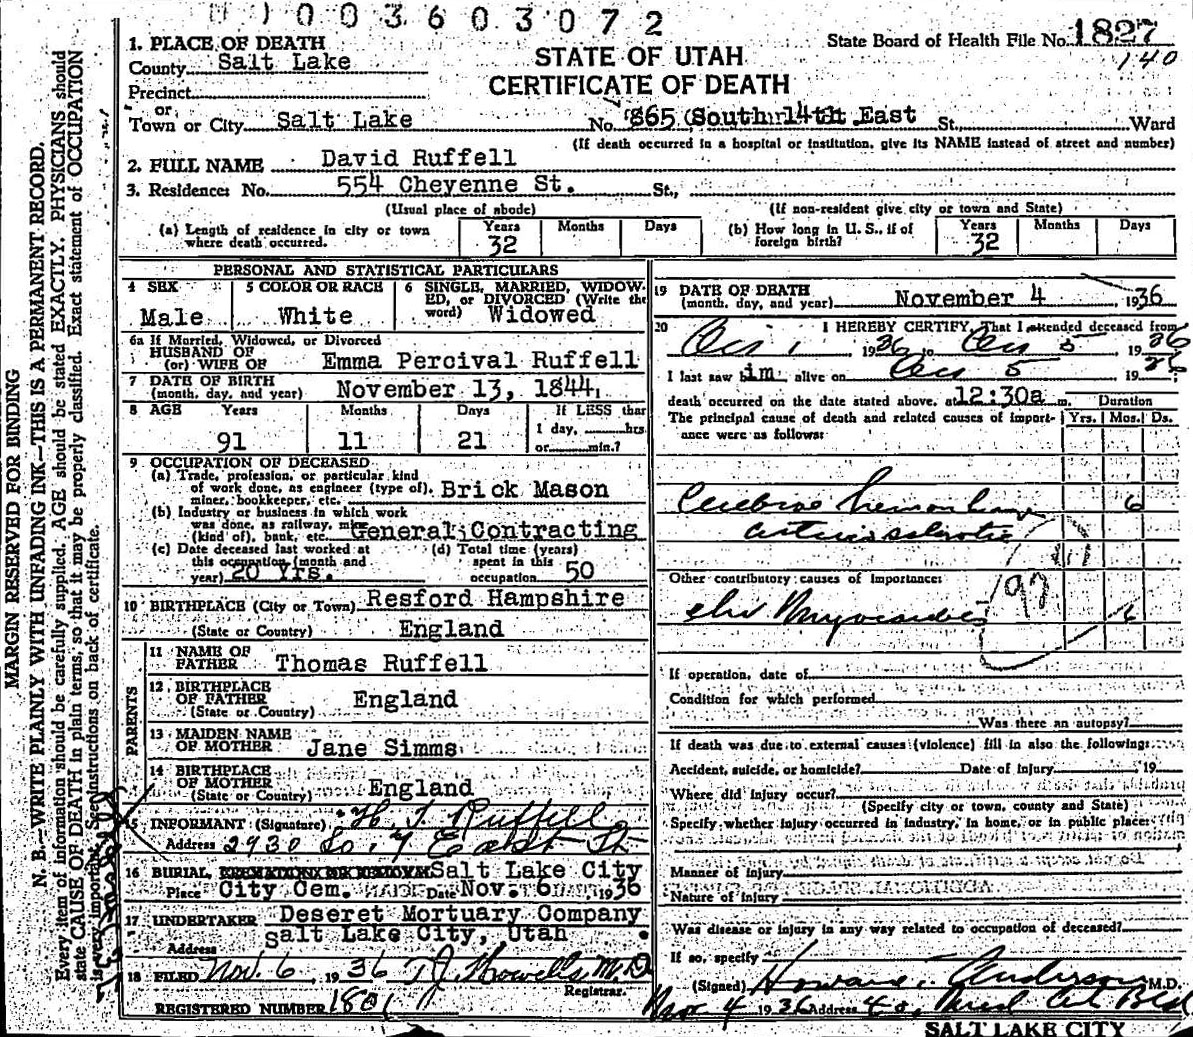 003603072
State Board of Health File No. 1827
140
STATE OF UTAH
CERTIFICATE OF DEATH
1. PLACE OF DEATH
County Salt Lake
Precinct
or
Town or City Salt Lake No. 865 South 14th East St., Ward
(If death occurred in a hospital or institution, give its NAME instead of street and number)
2. FULL NAME David Ruffell
3. Residence: No. 554 Cheyenne St. St.,
(Usual place of abode) (If non-resident give city or town and State)
(a) Length of residence in city or town where death occurred. Years 32 Months Days
(b) How long in U. S., if of foreign birth? Years 32 Months Days
PERSONAL AND STATISTICAL PARTICULARS
4 SEX Male
5 COLOR OR RACE White
6 SINGLE, MARRIED, WIDOWED, or DIVORCED (Write the word) Widowed
6a If Married, Widowed, or Divorced
HUSBAND OF
(or) WIFE OF Emma Percival Ruffell
7 DATE OF BIRTH
(month, day, and year) November 13, 1844
8 AGE Years 91 Months 11 Days 21 If LESS than 1 day, hrs or min.?
9 OCCUPATION OF DECEASED
(a) Trade, profession, or particular kind
of work done, as engineer (type of),
miner, bookkeeper, etc. Brick Mason
(b) Industry or business in which work
was done, as railway, mine
(kind of), bank, etc. General Contracting
(c) Date deceased last worked at
this occupation (month and
year) 20 Yrs.
(d) Total time (years)
spent in this
occupation 50
10 BIRTHPLACE (City or Town) Resford Hampshire
(State or Country) England
PARENTS
11 NAME OF
FATHER Thomas Ruffell
12 BIRTHPLACE
OF FATHER
(State or Country) England
13 MAIDEN NAME
OF MOTHER Jane Simms
14 BIRTHPLACE
OF MOTHER
(State or Country) England
15 INFORMANT (Signature) H. J. Ruffell
Address 2930 So. 7 East St
16 BURIAL, CREMATION OR REMOVAL Salt Lake City
Place City Cem. Date Nov. 6 1936
17 UNDERTAKER Deseret Mortuary Company
Address Salt Lake City, Utah
18 FILED Nov. 6, 1936 T J Howells M.D.
Registrar.
REGISTERED NUMBER 1801
19 DATE OF DEATH
(month, day, and year) November 4 1936
20 I HEREBY CERTIFY, That I attended deceased from
1936 to 1936
I last saw him alive on 19
death occurred on the date stated above, at 12:30a m. Duration
The principal cause of death and related causes of importance were as follows: Yrs. Mos. Ds.
Cerebral hemorrhage 6
arteriosclerotic
Other contributory causes of importance:
97
chr Myocarditis 6
If operation, date of
Condition for which performed
Was there an autopsy?
If death was due to external causes (violence) fill in also the following:
Accident, suicide, or homicide? Date of injury 19
Where did injury occur?
(Specify city or town, county and State)
Specify whether injury occurred in industry, in home, or in public place:
Manner of injury
Nature of injury
Was disease or injury in any way related to occupation of deceased?
If so, specify
(Signed) Anderson M.D.
Nov 4 1936 Address
SALT LAKE CITY
MARGIN RESERVED FOR BINDING
N. B.—WRITE PLAINLY WITH UNFADING INK—THIS IS A PERMANENT RECORD.
Every item of information should be carefully supplied. AGE should be stated EXACTLY. PHYSICIANS should
state CAUSE OF DEATH in plain terms, so that it may be properly classified. Exact statement of OCCUPATION
is very important. See instructions on back of certificate.